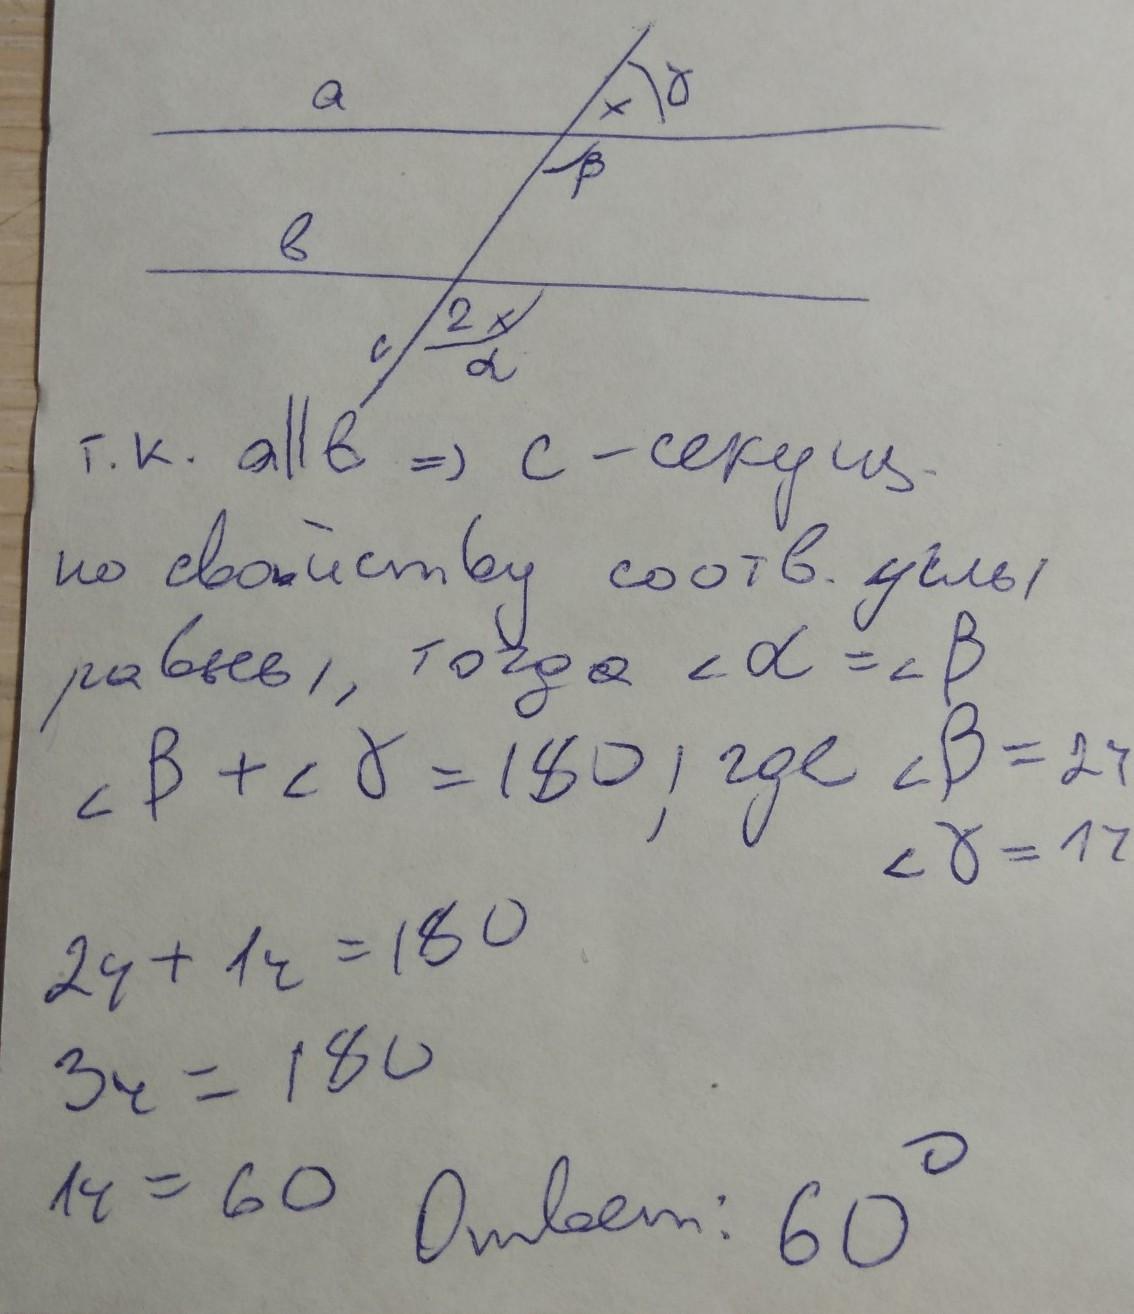 a
x γ
β
в
2x
c
α
т.к. a||в => c - секущ.
по свойству соотв. углы
равны, тогда ∠α = ∠β
∠β + ∠γ = 180, где ∠β = 2ч
∠γ = 1ч
2ч + 1ч = 180
3ч = 180
1ч = 60 Ответ: 60°